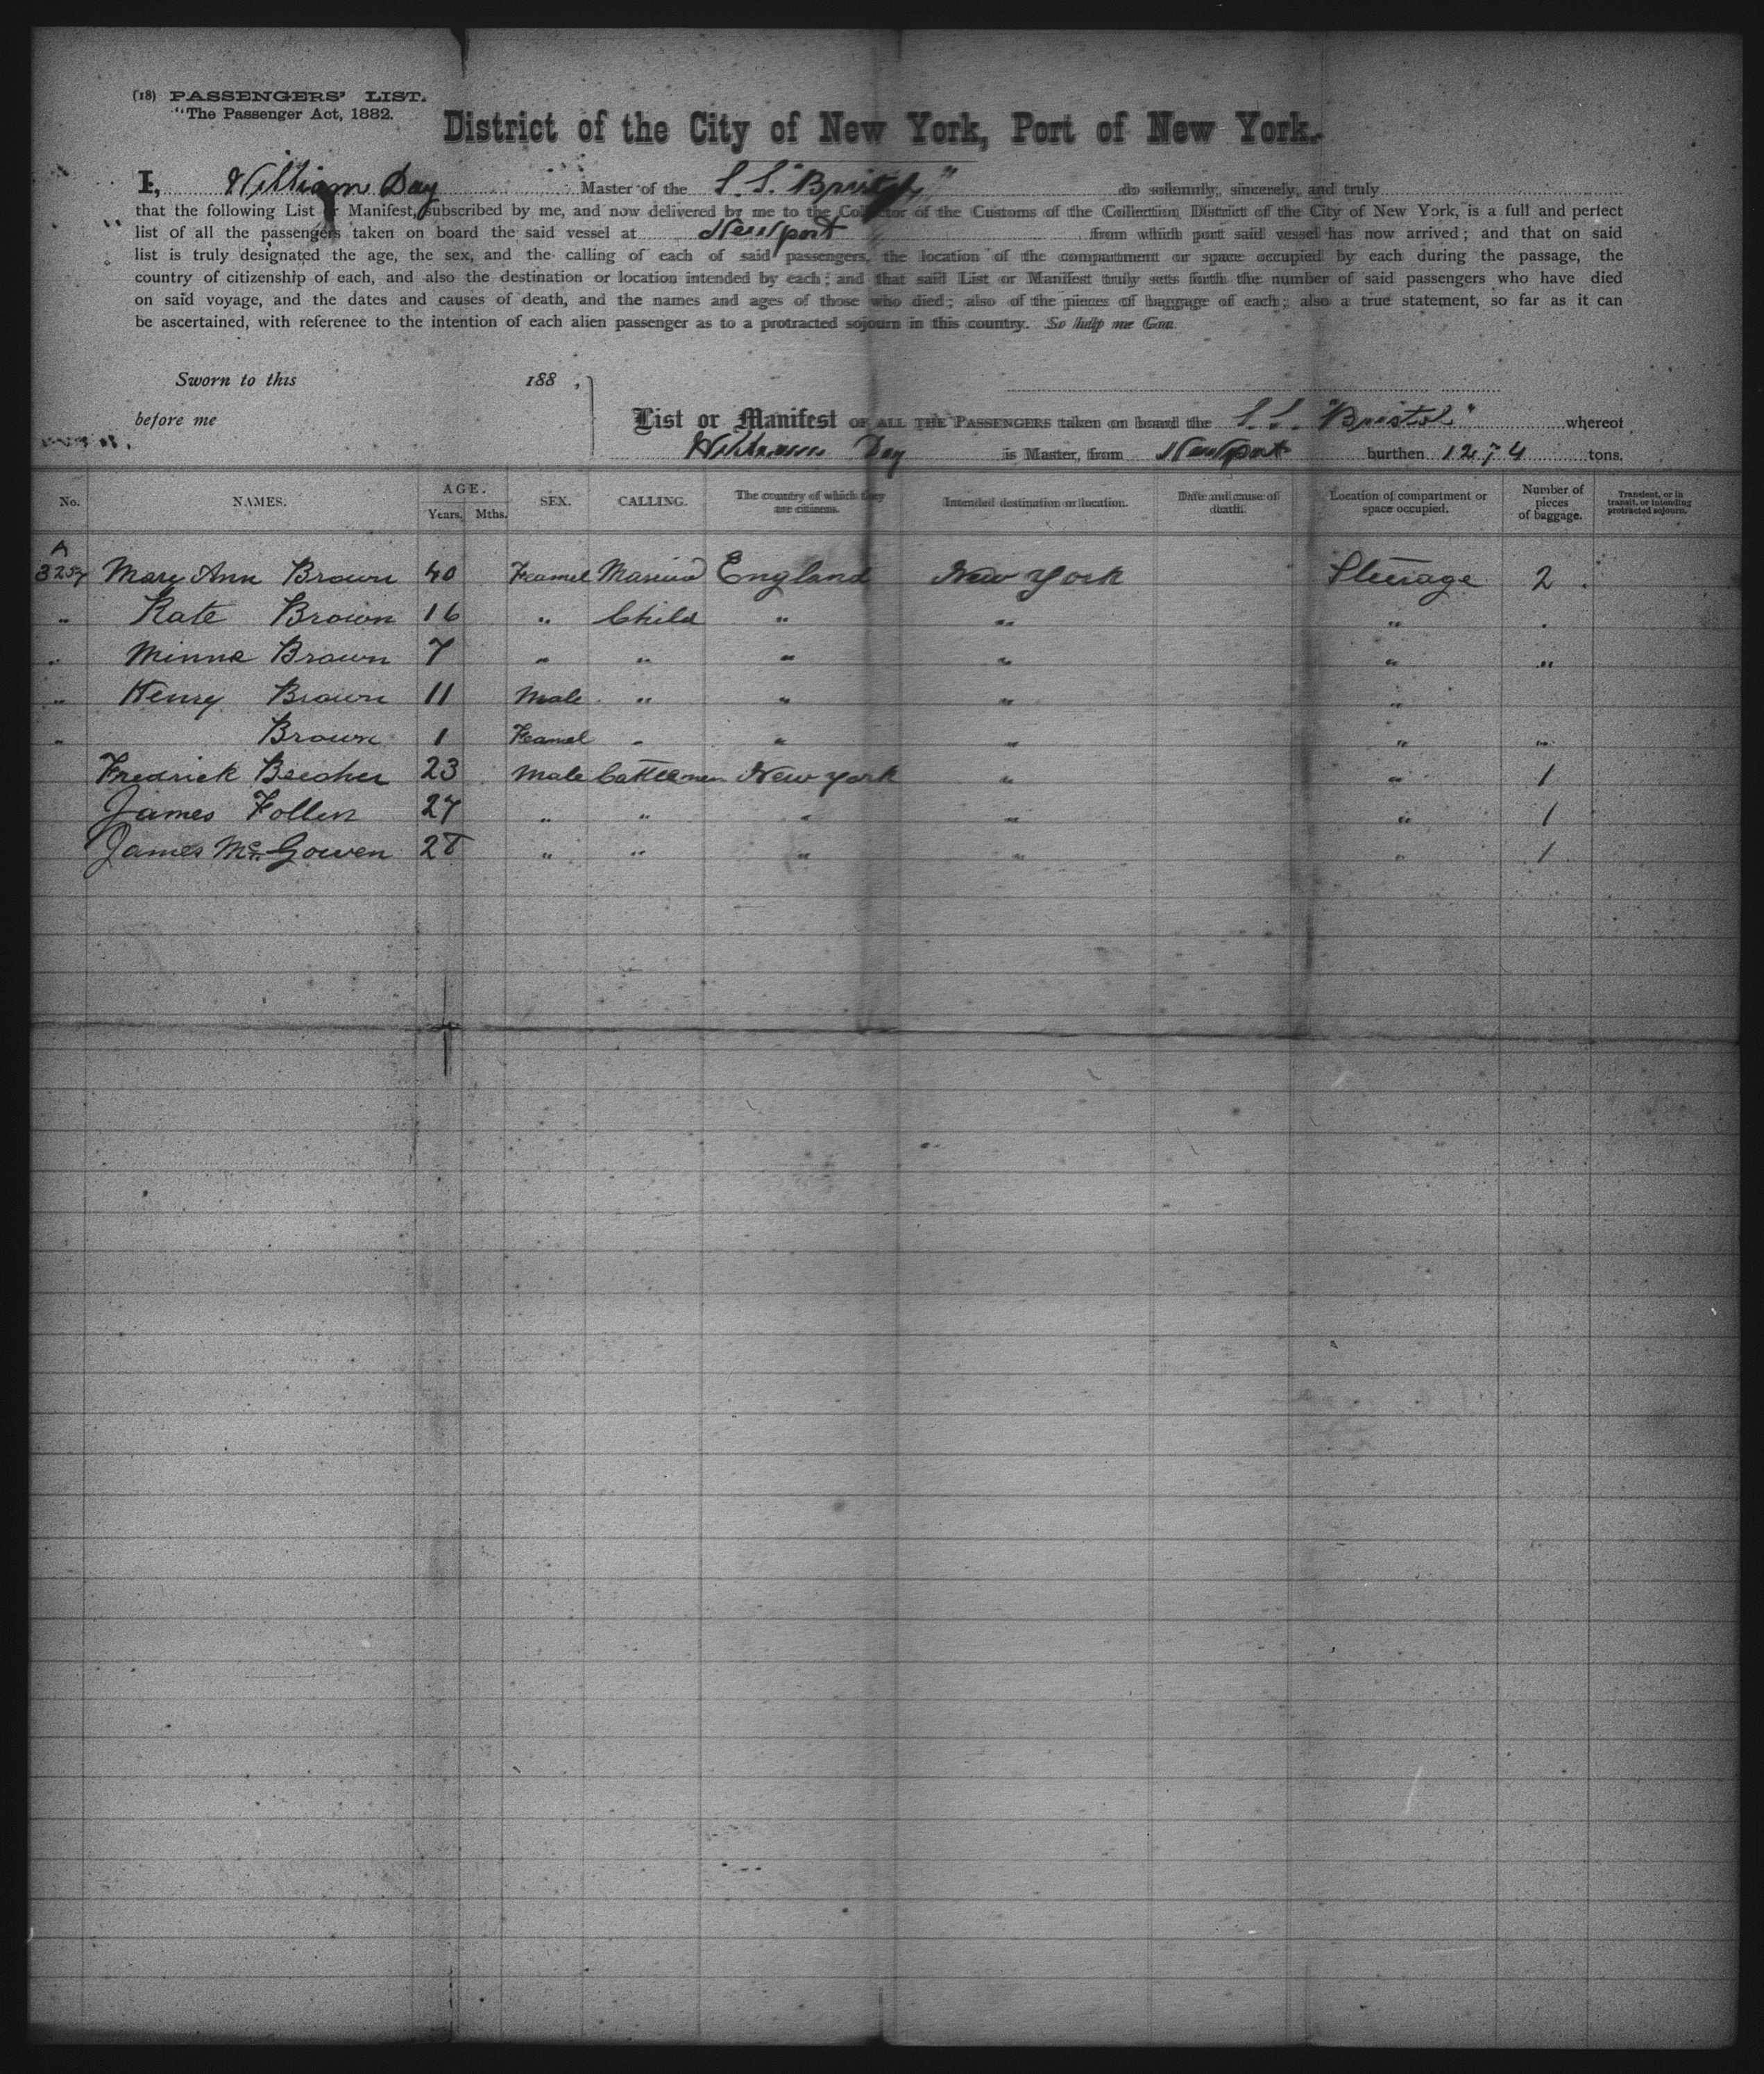 (18) PASSENGERS' LIST.
"The Passenger Act, 1882.
District of the City of New York, Port of New York.
I, William Day Master of the S.S. "Bristol" do solemnly, sincerely, and truly
that the following List or Manifest, subscribed by me, and now delivered by me to the Collector of the Customs of the Collection District of the City of New York, is a full and perfect
list of all the passengers taken on board the said vessel at Newport from which port said vessel has now arrived; and that on said
list is truly designated the age, the sex, and the calling of each of said passengers, the location of the compartment or space occupied by each during the passage, the
country of citizenship of each, and also the destination or location intended by each; and that said List or Manifest truly sets forth the number of said passengers who have died
on said voyage, and the dates and causes of death, and the names and ages of those who died; also of the pieces of baggage of each; also a true statement, so far as it can
be ascertained, with reference to the intention of each alien passenger as to a protracted sojourn in this country. So help me God.
Sworn to this 188 ,
before me
List or Manifest OF ALL THE PASSENGERS taken on board the S.S. "Bristol" whereof
William Day is Master, from Newport burthen 1274 tons.
No. NAMES. AGE. Years. Mths. SEX. CALLING. The country of which they are citizens. Intended destination or location. Date and cause of death. Location of compartment or space occupied. Number of pieces of baggage. Transient, or in transit, or intending protracted sojourn.
A
Mary Ann Brown 40 Feamel Married England New York Steerage 2
" Kate Brown 16 " Child " " "
" Minna Brown 7 " " " " " "
" Henry Brown 11 Male " " " "
" Brown 1 Feamel " " " " "
Fredrick Beecher 23 Male Cattlemen New York " " 1
James Follen 27 " " " " " 1
James McGowen 28 " " " " " 1